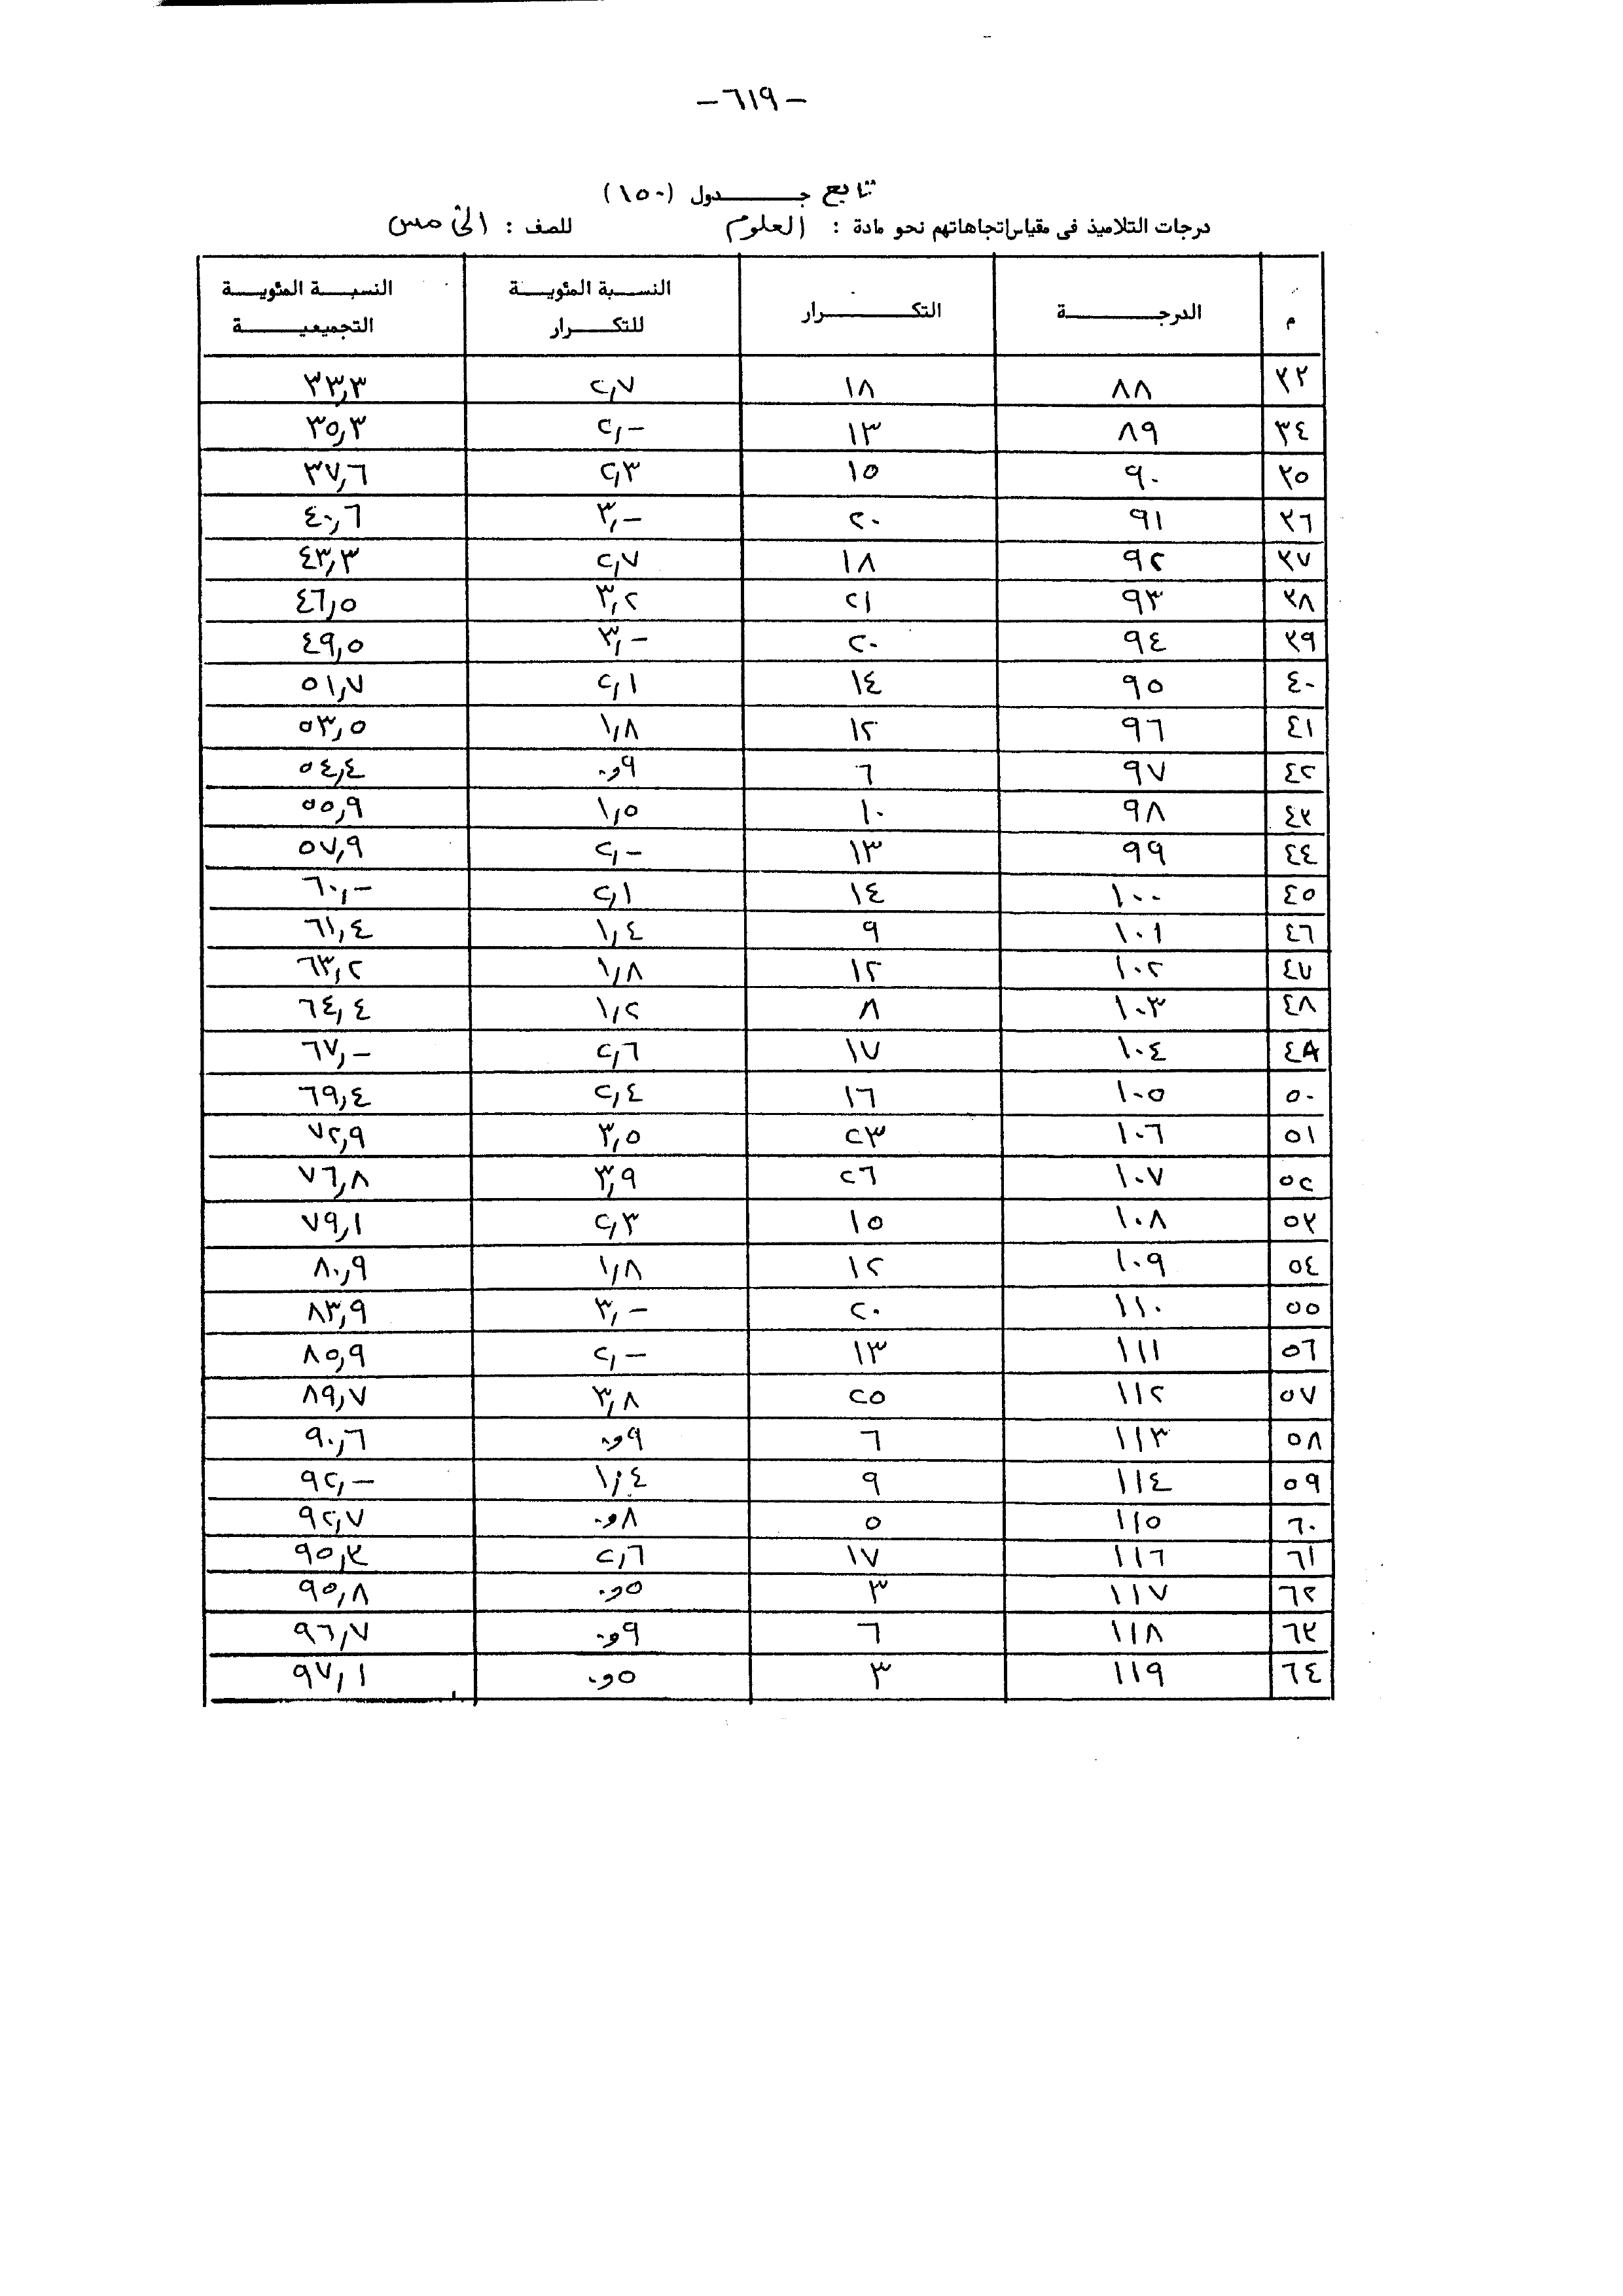 -٦١٩-
تابع جدول (١٥٠)
درجات التلاميذ فى مقياس اتجاهاتهم نحو مادة : العلوم للصف : الخامس
م الدرجة التكرار النسبة المئوية للتكرار النسبة المئوية التجميعية
٣٣ ٨٨ ١٨ ٢,٧ ٣٣,٣
٣٤ ٨٩ ١٣ ٢,- ٣٥,٣
٣٥ ٩٠ ١٥ ٢,٣ ٣٧,٦
٣٦ ٩١ ٢٠ ٣,- ٤٠,٦
٣٧ ٩٢ ١٨ ٢,٧ ٤٣,٣
٣٨ ٩٣ ٢١ ٣,٢ ٤٦,٥
٣٩ ٩٤ ٢٠ ٣,- ٤٩,٥
٤٠ ٩٥ ١٤ ٢,١ ٥١,٧
٤١ ٩٦ ١٢ ١,٨ ٥٣,٥
٤٢ ٩٧ ٦ ٠,٩ ٥٤,٤
٤٣ ٩٨ ١٠ ١,٥ ٥٥,٩
٤٤ ٩٩ ١٣ ٢,- ٥٧,٩
٤٥ ١٠٠ ١٤ ٢,١ ٦٠,-
٤٦ ١٠١ ٩ ١,٤ ٦١,٤
٤٧ ١٠٢ ١٢ ١,٨ ٦٣,٢
٤٨ ١٠٣ ٨ ١,٢ ٦٤,٤
٤٩ ١٠٤ ١٧ ٢,٦ ٦٧,-
٥٠ ١٠٥ ١٦ ٢,٤ ٦٩,٤
٥١ ١٠٦ ٢٣ ٣,٥ ٧٢,٩
٥٢ ١٠٧ ٢٦ ٣,٩ ٧٦,٨
٥٣ ١٠٨ ١٥ ٢,٣ ٧٩,١
٥٤ ١٠٩ ١٢ ١,٨ ٨٠,٩
٥٥ ١١٠ ٢٠ ٣,- ٨٣,٩
٥٦ ١١١ ١٣ ٢,- ٨٥,٩
٥٧ ١١٢ ٢٥ ٣,٨ ٨٩,٧
٥٨ ١١٣ ٦ ٠,٩ ٩٠,٦
٥٩ ١١٤ ٩ ١,٤ ٩٢,-
٦٠ ١١٥ ٥ ٠,٨ ٩٢,٧
٦١ ١١٦ ١٧ ٢,٦ ٩٥,٣
٦٢ ١١٧ ٣ ٠,٥ ٩٥,٨
٦٣ ١١٨ ٦ ٠,٩ ٩٦,٧
٦٤ ١١٩ ٣ ٠,٥ ٩٧,١